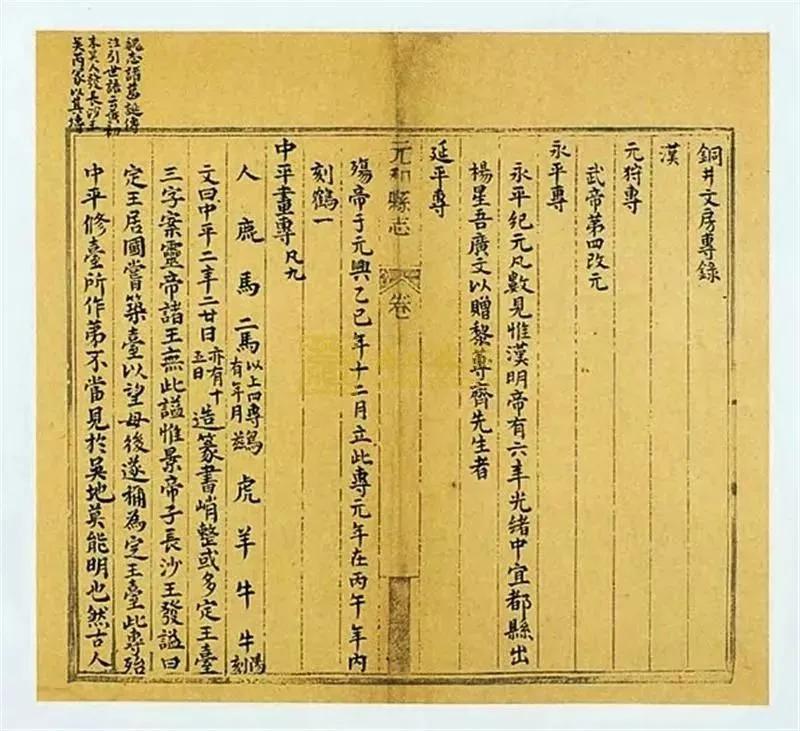 銅井文房專錄
漢
元狩專
武帝第四改元
永平專
永平紀元凡數見惟漢明帝有六年光緒中宜都縣出
楊星吾廣文以贈黎蒓齊先生者
延平專
元和縣志 卷
殤帝于元興乙巳年十二月立此專元年在丙午年內
刻鶴一
中平畫專凡九
人 鹿 馬 二馬以上四專有年月 鷄 虎 羊 牛 牛陽刻
文曰中平二年二廿日亦有十五日造篆書峭整或多定王臺
三字案靈帝諸王無此謚惟景帝子長沙王發謚曰
定王居國嘗築臺以望母後遂稱為定王臺此專殆
中平修臺所作第不當見於吳地莫能明也然古人
魏志諸葛誕傳
注引世語云黃初
末吳人發長沙王
吳芮冢以其塼